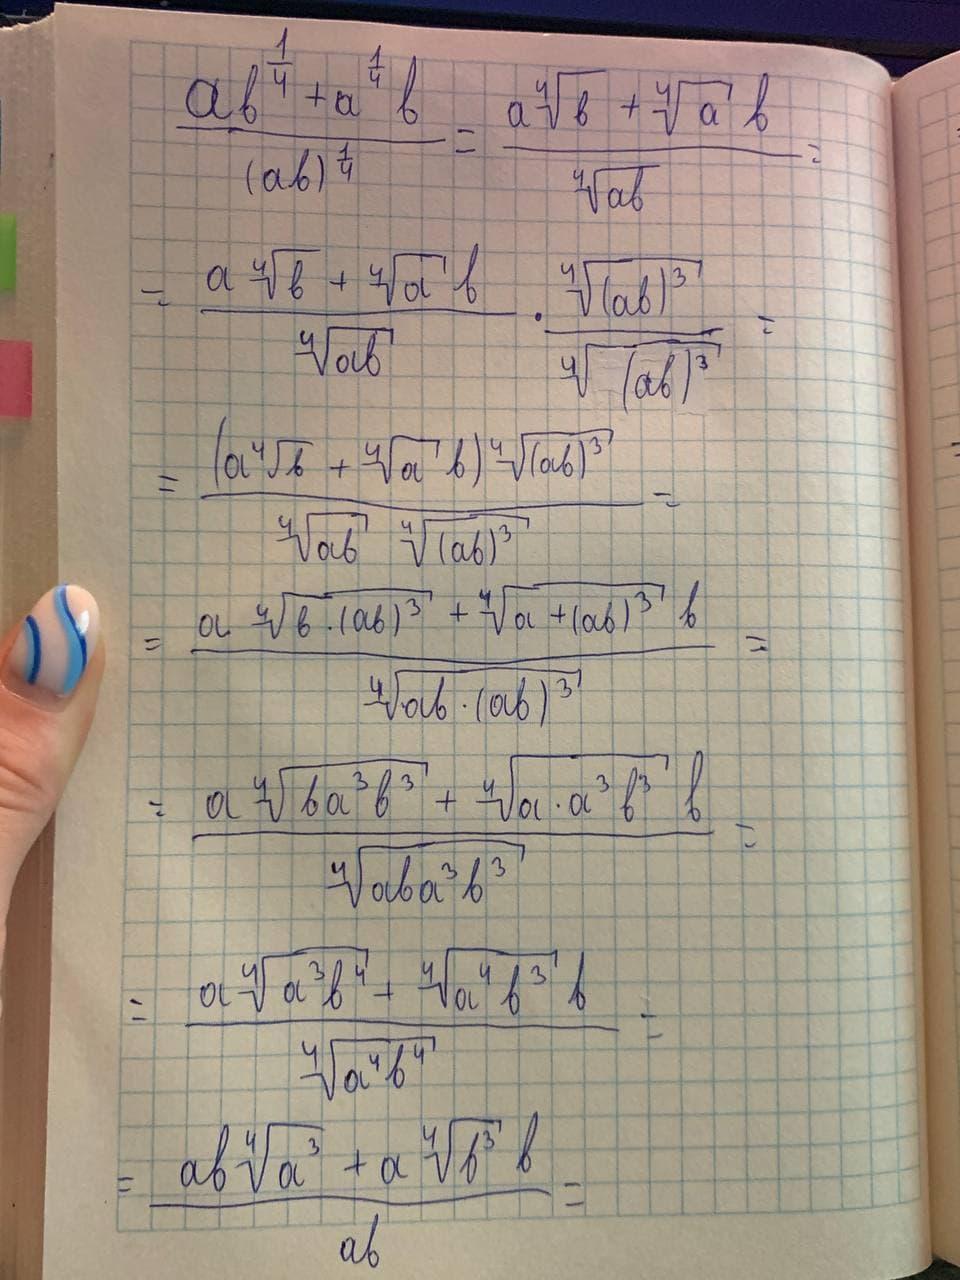 (ab^{1/4} + a^{1/4} b) / (ab)^{1/4} = (a ⁴√b + ⁴√a b) / ⁴√(ab) =
= (a ⁴√b + ⁴√a b) / ⁴√(ab) · ⁴√((ab)³) / ⁴√((ab)³) =
= ((a ⁴√b + ⁴√a b) ⁴√((ab)³)) / (⁴√(ab) ⁴√((ab)³)) =
= (a ⁴√(b · (ab)³) + ⁴√(a + (ab)³) b) / ⁴√(ab · (ab)³) =
= (a ⁴√(ba³b³) + ⁴√(a · a³b³) b) / ⁴√(aba³b³) =
= (a ⁴√(a³b⁴) + ⁴√(a⁴b³) b) / ⁴√(a⁴b⁴) =
= (ab ⁴√(a³) + a ⁴√(b³) b) / ab =